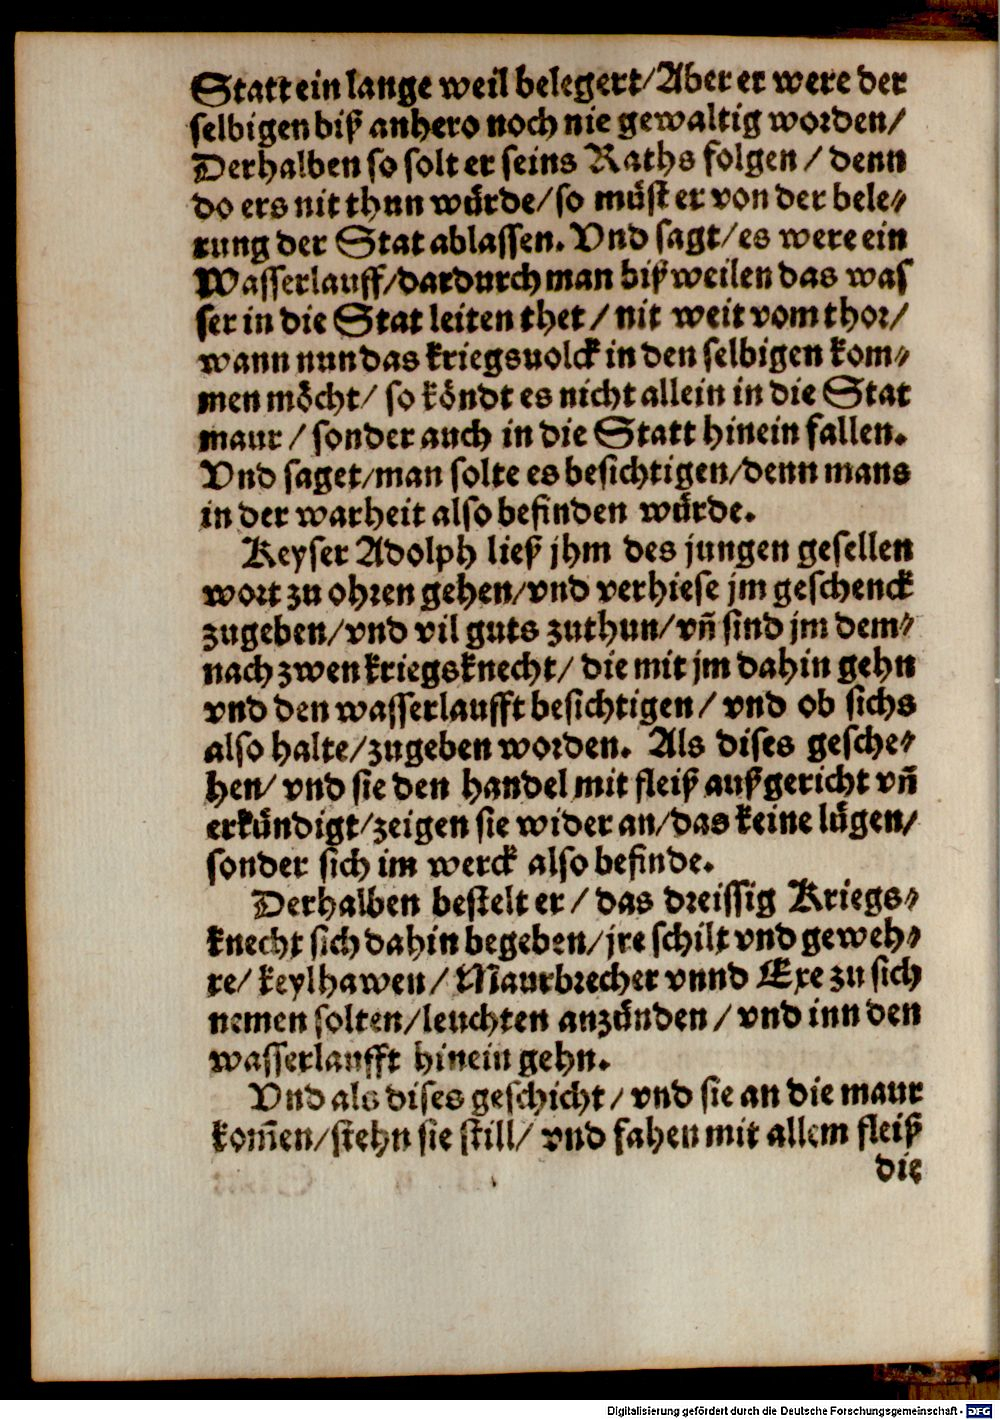 Statt ein lange weil belegert/ Aber er were der
selbigen biß anhero noch nie gewaltig worden/
Derhalben so solt er seins Raths folgen / denn
do ers nit thun wuͤrde/ so muͤst er von der bele⸗
rung der Stat ablassen. Vnd sagt/ es were ein
Wasserlauff/ dardurch man bißweilen das was
ser in die Stat leiten thet / nit weit vom thor/
wann nun das kriegsuolck in den selbigen kom⸗
men moͤcht/ so koͤndt es nicht allein in die Stat
maur / sonder auch in die Statt hinein fallen.
Vnd saget/ man solte es besichtigen/ denn mans
in der warheit also befinden wuͤrde.
Keyser Adolph ließ jhm des jungen gesellen
wort zu ohren gehen/ vnd verhiese jm geschenck
zugeben/ vnd vil guts zuthun/ vn̄ sind jm dem⸗
nach zwen kriegsknecht/ die mit jm dahin gehn
vnd den wasserlaufft besichtigen/ vnd ob sichs
also halte/ zugeben worden. Als dises gesche⸗
hen/ vnd sie den handel mit fleiß außgericht vn̄
erkuͤndigt/ zeigen sie wider an/ das keine luͤgen/
sonder sich im werck also befinde.
Derhalben bestelt er / das dreissig Kriegs⸗
knecht sich dahin begeben/ jre schilt vnd geweh⸗
re/ keylhawen/ Maurbrecher vnnd Exe zu sich
nemen solten/ leuchten anzuͤnden / vnd inn den
wasserlaufft hinein gehn.
Vnd als dises geschicht / vnd sie an die maur
kom̄en/ stehn sie still/ vnd fahen mit allem fleiß
die
Digitalisierung gefördert durch die Deutsche Forschungsgemeinschaft - DFG